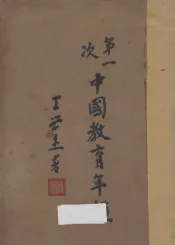 第一次
中國教育年
王世杰署